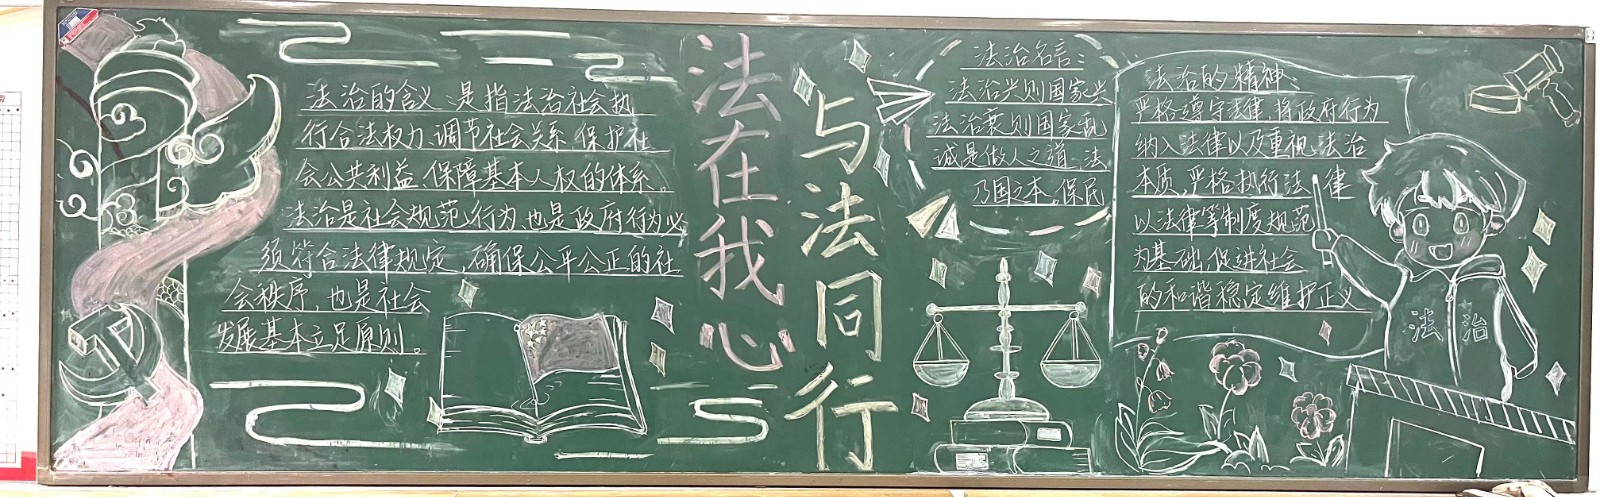 法治的含义、是指法治社会执
行合法权力、调节社会关系、保护社
会公共利益、保障基本人权的体系。
法治是社会规范、行为、也是政府行为必
须符合法律规定，确保公平公正的社
会秩序，也是社会
发展基本立足原则。
法在我心
与法同行
法治名言：
法治兴则国家兴
法治衰则国家乱
诚是做人之道、法
乃国之本。保民
法治的精神：
严格遵守法律，将政府行为
纳入法律以及重视、法治
本质，严格执行法律
以法律等制度规范
为基础，促进社会
的和谐稳定维护正义
法治